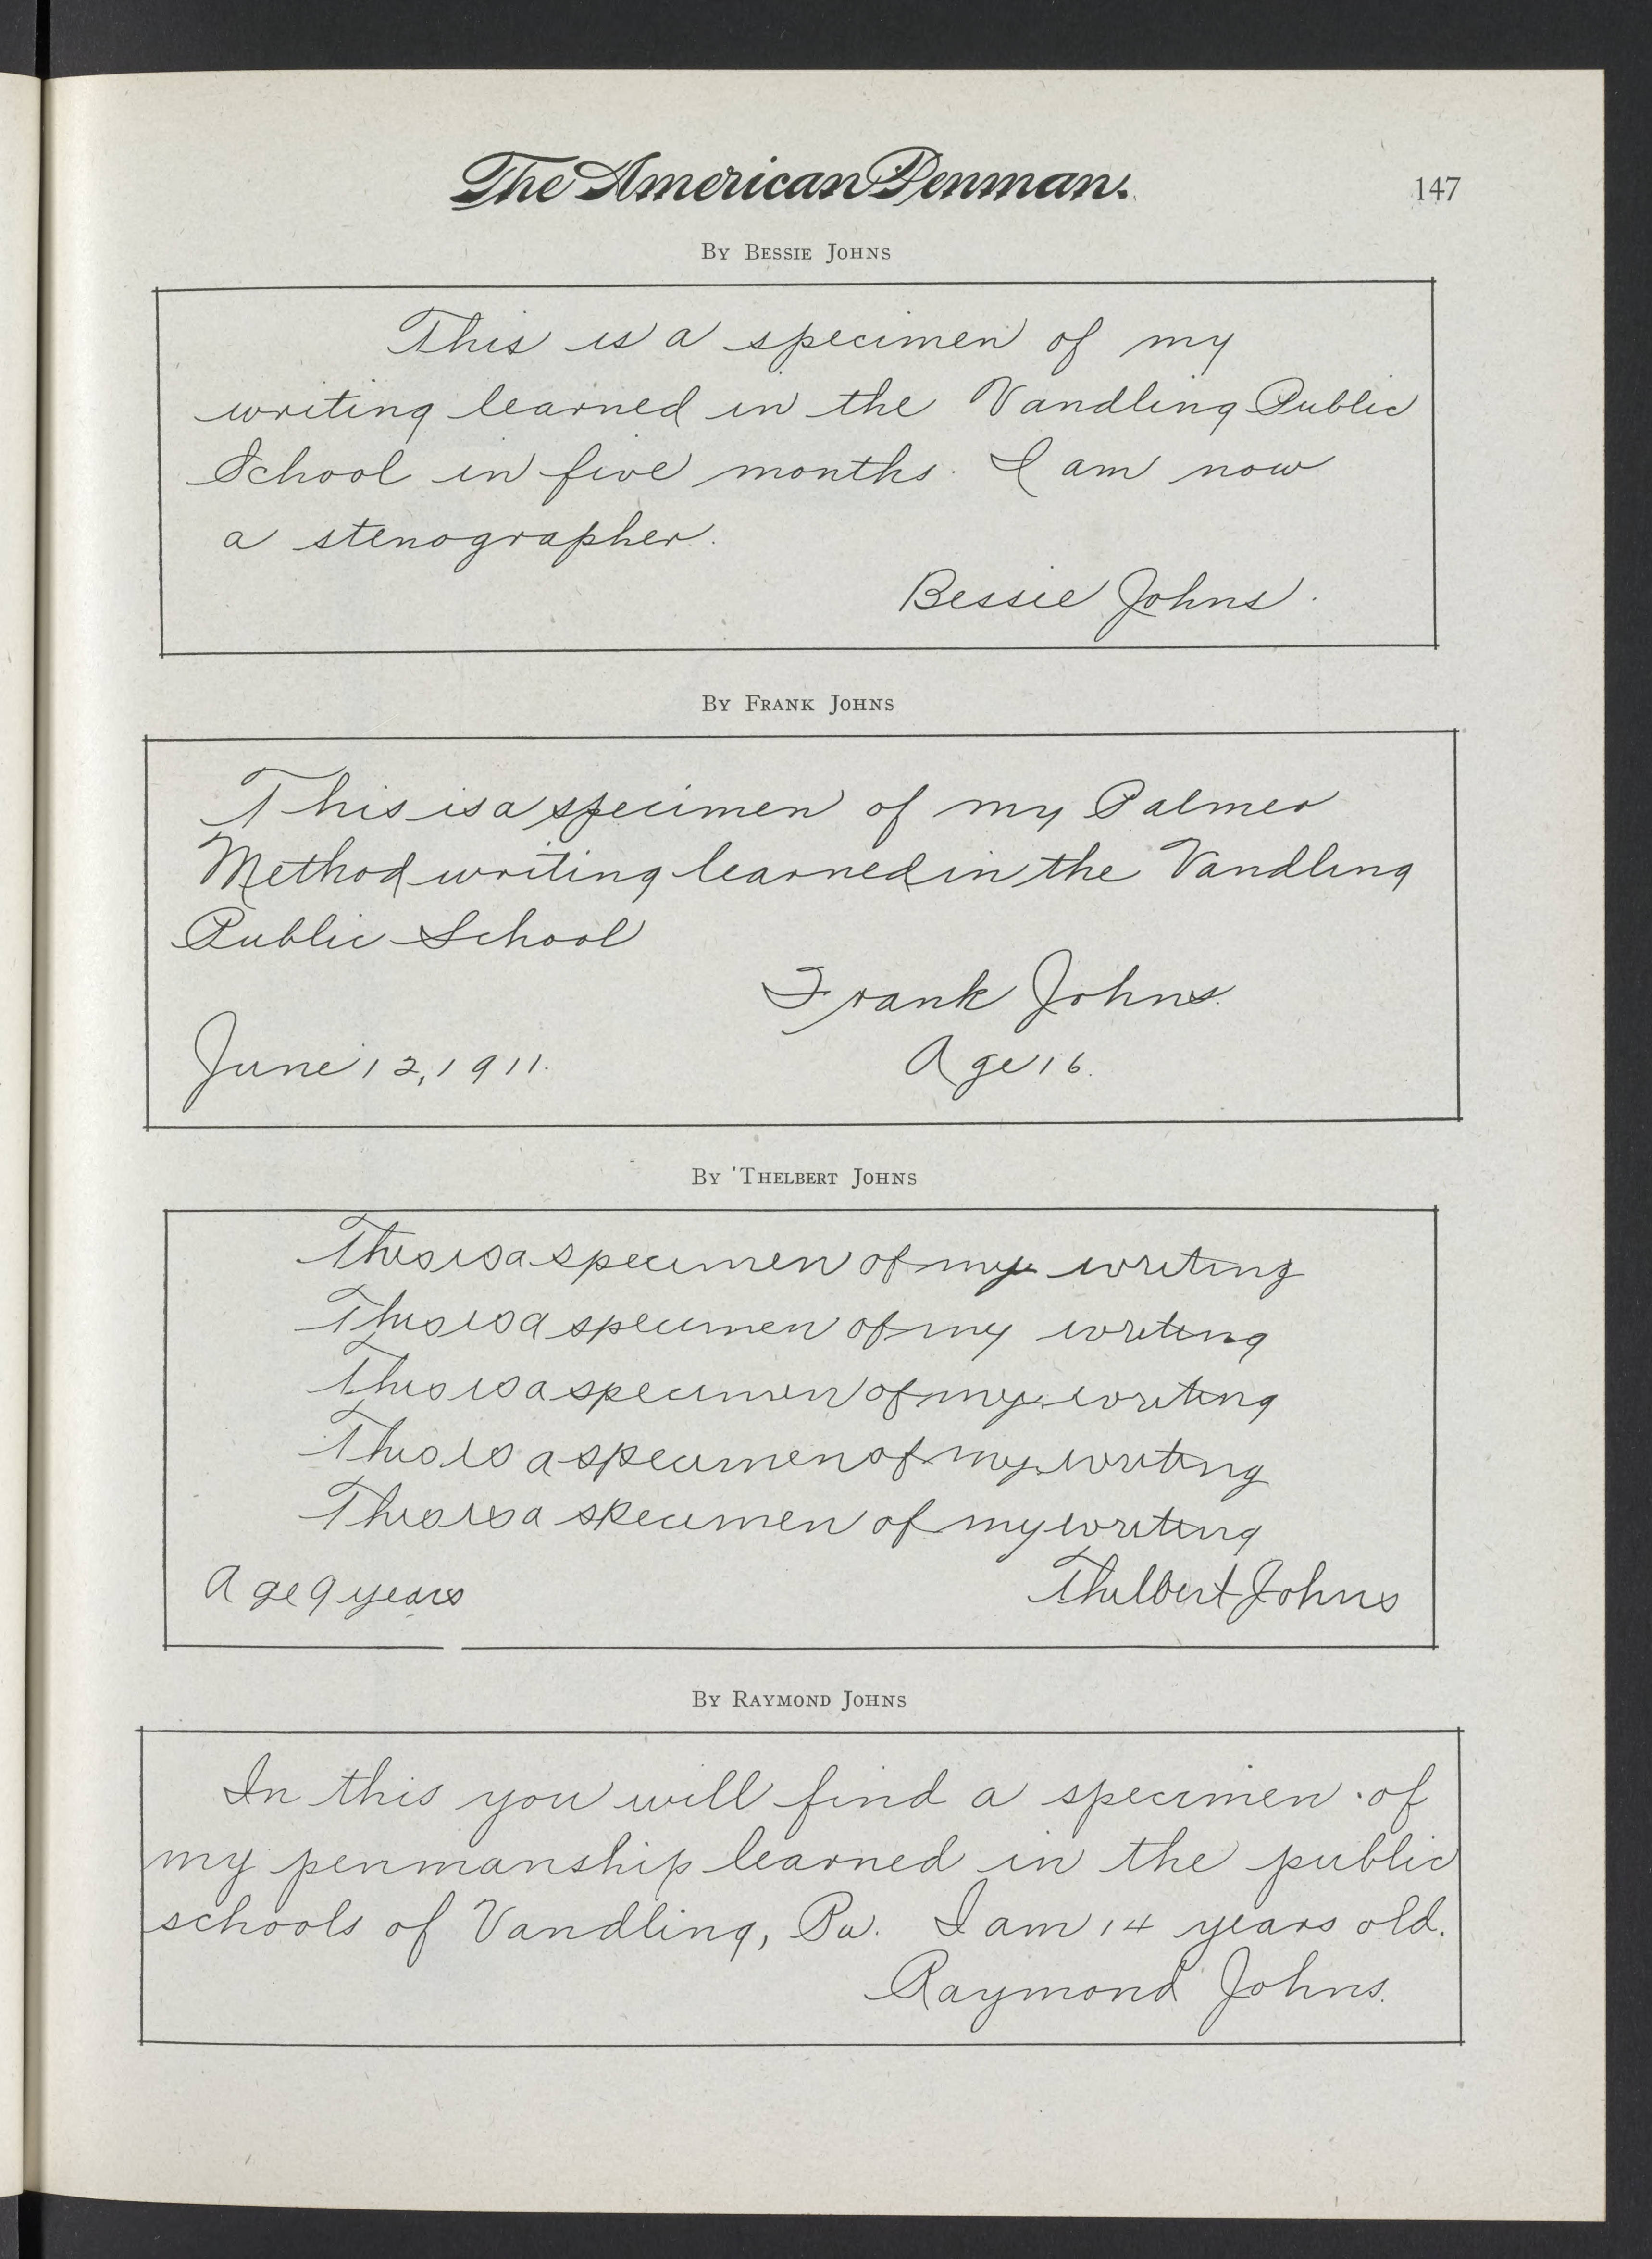 The American Penman.
147
By Bessie Johns
This is a specimen of my
writing learned in the Vandling Public
School in five months. I am now
a stenographer.
Bessie Johns.
By Frank Johns
This is a specimen of my Palmer
Method writing learned in the Vandling
Public School
Frank Johns.
June 12, 1911.
Age 16.
By 'Thelbert Johns
This is a specimen of my writing
This is a specimen of my writing
This is a specimen of my writing
This is a specimen of my writing
This is a specimen of my writing
Age 9 years
Thelbert Johns
By Raymond Johns
In this you will find a specimen of
my penmanship learned in the public
schools of Vandling, Pa. I am 14 years old.
Raymond Johns.